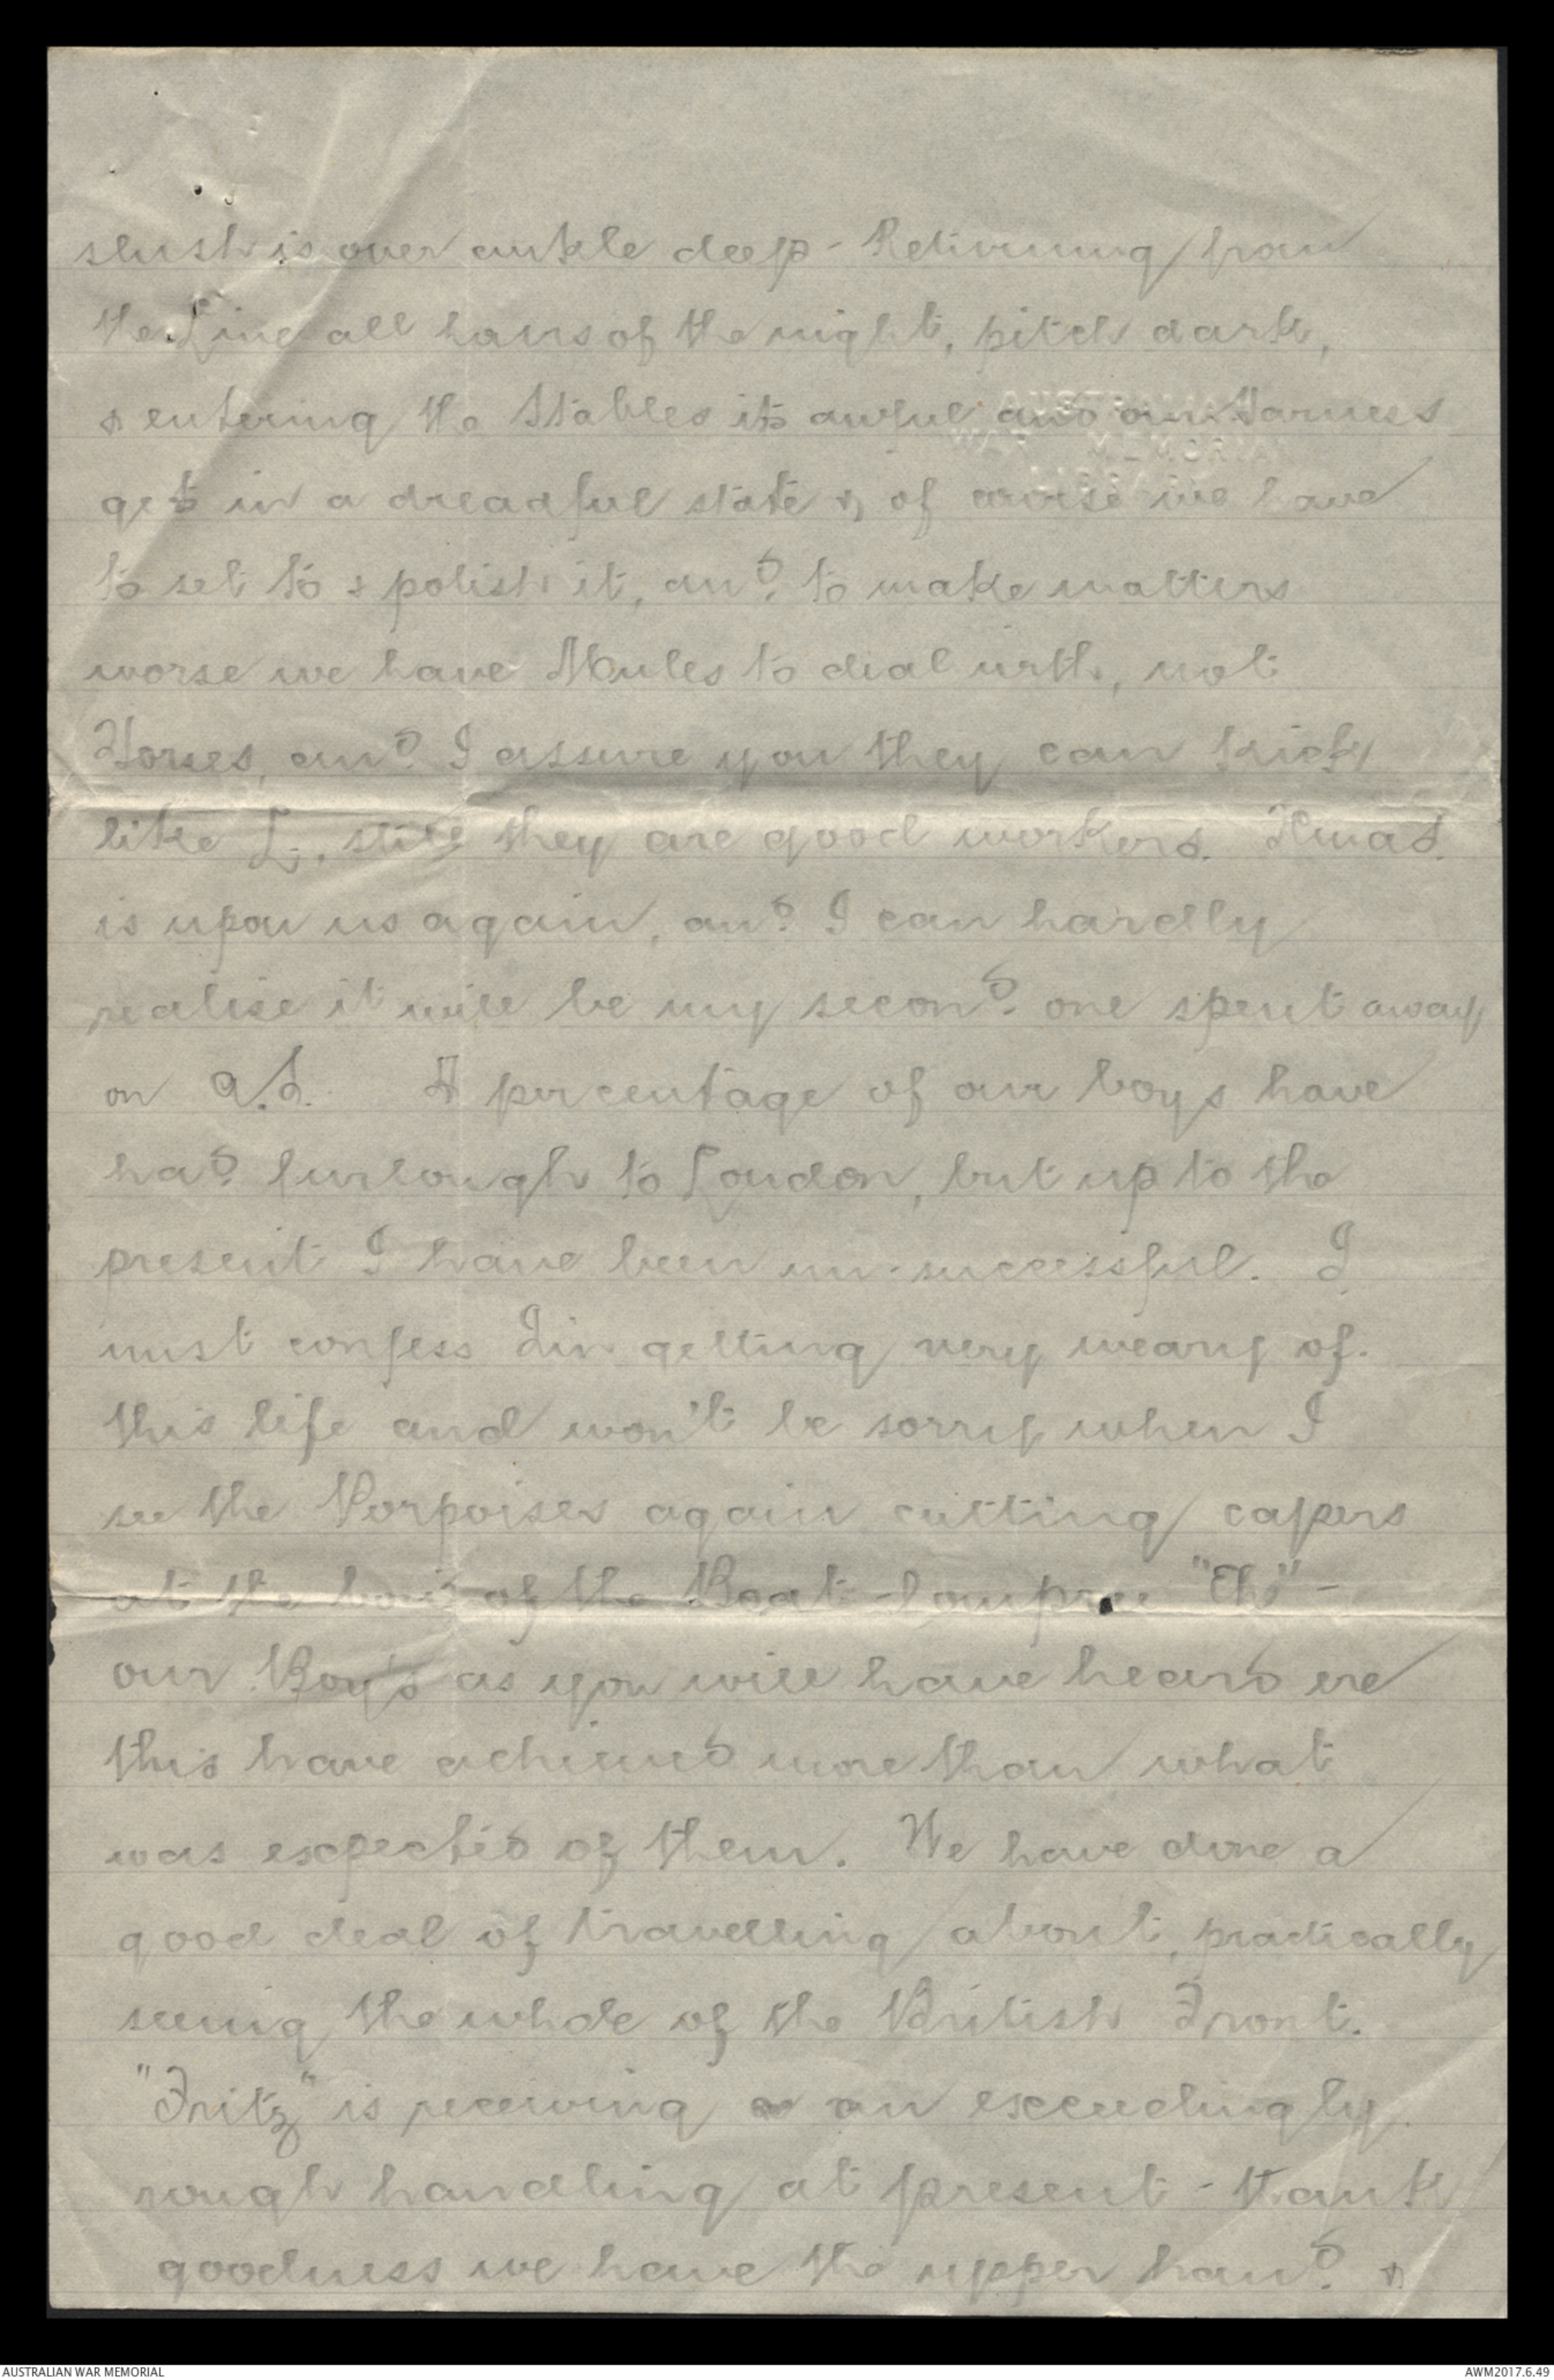 slush is over ankle deep - Returning from
the Line all hours of the night, pitch dark,
& entering the Stables its awful and our Harness
get in a dreadful state & of course we have
to set to & polish it, and to make matters
worse we have Mules to deal with, not
Horses, and I assure you they can kick
like L., still they are good workers. Xmas.
is upon us again, and I can hardly
realise it will be my second one spent away
on A.S. A percentage of our boys have
had furlough to London, but up to the
present I have been un-successful. I
must confess I'm getting very weary of
this life and won't be sorry when I
see the Porpoises again cutting capers
at the bow of the Boat "Eh" -
our Boys as you will have heard ere
this have achieved more than what
was expected of them. We have done a
good deal of travelling about, practically
seeing the whole of the British Front.
"Fritz" is receiving an exceedingly
rough handling at present - thank
goodness we have the upper hand &
AUSTRALIAN
WAR MEMORIAL
AUSTRALIAN WAR MEMORIAL
AWM2017.6.49